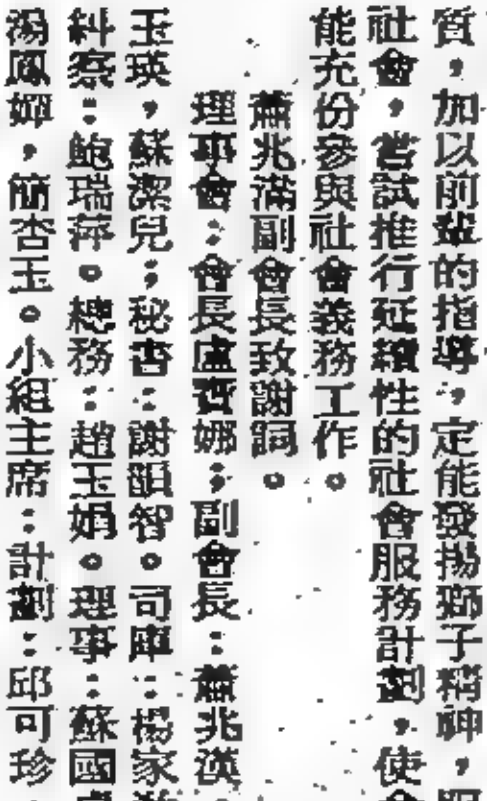 質，加以前輩的指導，定能發揚獅子精神，
社會，嘗試推行延續性的社會服務計劃，使
能充份參與社會義務工作。
蕭兆滿副會長致謝詞。
理事會：會長盧寶娜；副會長：蕭兆漢
玉瑛，蘇潔兒；秘書：謝韻智。司庫：楊家
糾察：鮑瑞萍。總務：趙玉娟。理事：蘇國
湯鳳嬋，簡杏玉。小組主席：計劃：邱可珍